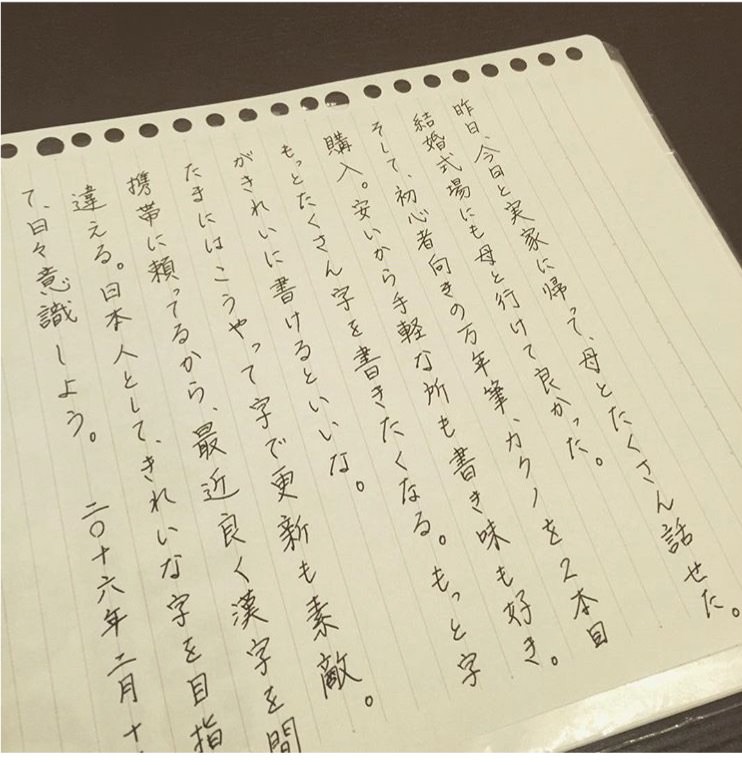 昨日、今日と実家に帰って、母とたくさん話せた。
結婚式場にも母と行けて良かった。
そして、初心者向きの万年筆、カクノを2本目
購入。安いから手軽な所も書き味も好き。
もっとたくさん字を書きたくなる。もっと字
がきれいに書けるといいな。
たまにはこうやって字で更新も素敵。
携帯に頼ってるから、最近良く漢字を間
違える。日本人として、きれいな字を目指
て、日々意識しよう。 二〇十六年二月十